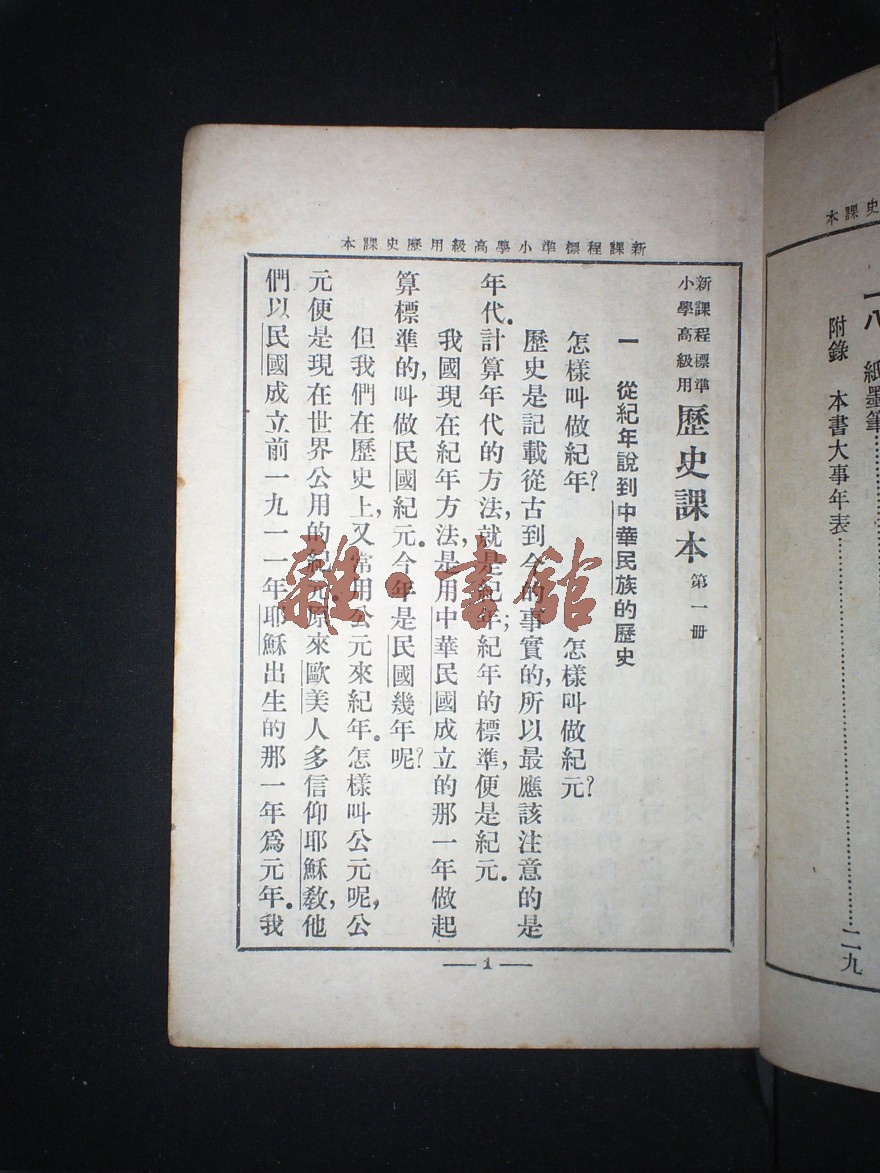 史課本
一八 紙墨筆
附錄 本書大事年表……二九
新課程標準小學高級用歷史課本
新課程標準
小學高級用
歷史課本 第一冊
一 從紀年說到中華民族的歷史
怎樣叫做紀年? 怎樣叫做紀元?
歷史是記載從古到今的事實的,所以最應該注意的是
年代.計算年代的方法,就是紀年;紀年的標準,便是紀元.
我國現在紀年方法,是用中華民國成立的那一年做起
算標準的,叫做民國紀元.今年是民國幾年呢?
但我們在歷史上,又常用公元來紀年.怎樣叫公元呢,公
元便是現在世界公用的紀元.原來歐美人多信仰耶穌教,他
們以民國成立前一九一一年耶穌出生的那一年爲元年.我
— 1 —
雜·書館